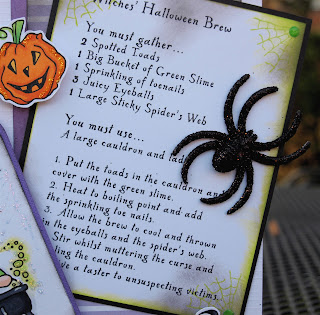 Witches' Halloween Brew
You must gather...
2 Spotted Toads
1 Big Bucket of Green Slime
1 Sprinkling of toenails
3 Juicy Eyeballs
1 Large Sticky Spider's Web
You must use...
A large cauldron and
1. Put the toads in the cauldron and
cover with the green slime.
2. Heat to boiling point and add
the sprinkling toe nails.
3. Allow the brew to cool and thrown
in the eyeballs and the spider's web.
Stir whilst muttering the curse and
the cauldron.
a taster to unsuspecting victims...